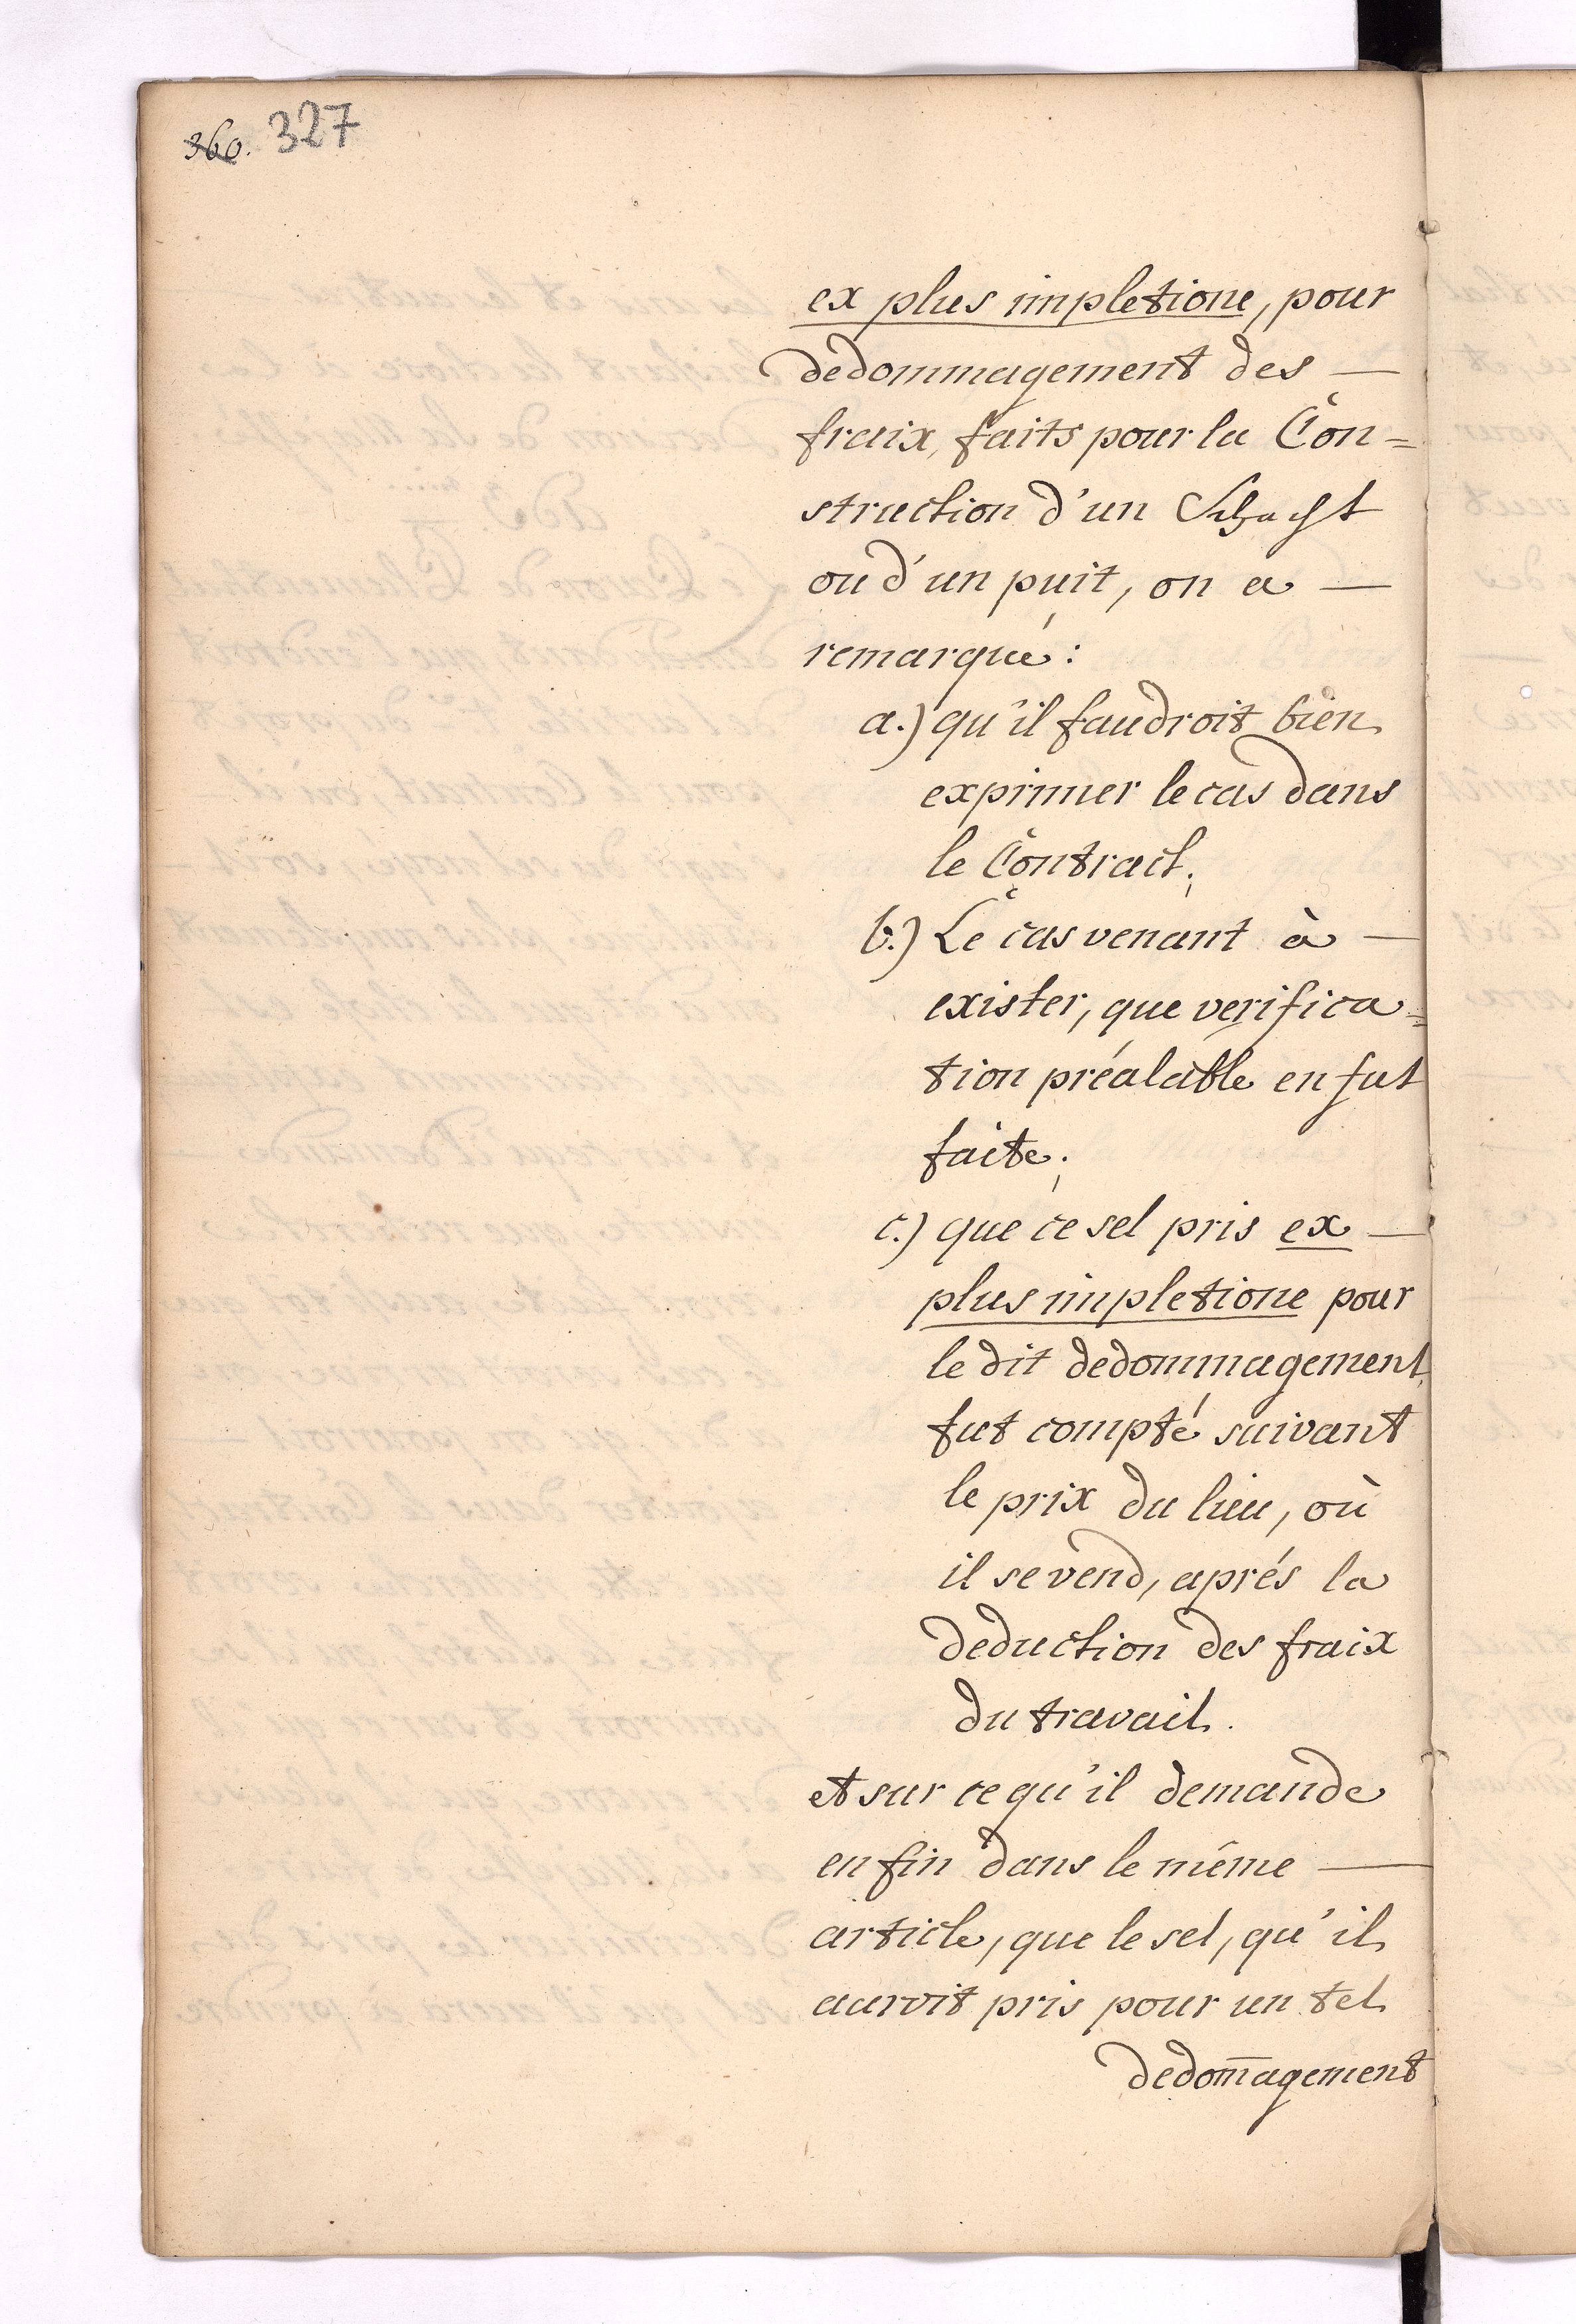 360. 327
ex plus impletione, pour
dedommagement des —
fraix, faits pour la Con=
struction d'un Schacht
ou d'un puit, on a —
remarqué:
a.) qu'il faudroit bien
exprimer le cas dans
le Contract;
b.) Le cas venant à —
exister, que verifica=
tion préalable en fut
faite;
c.) que ce sel pris ex —
plus impletione pour
le dit dedommagement
fut compté suivant
le prix du lieu, où
il se vend, aprés la
deduction des fraix
du travail.
et sur ce qu'il demande
enfin dans le même —
article, que le sel, qu'il
auroit pris pour un tel
dedom̄agement